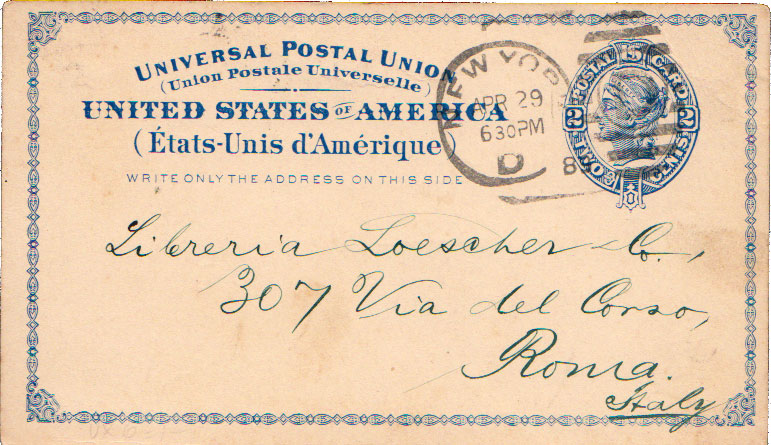 UNIVERSAL POSTAL UNION
(Union Postale Universelle)
UNITED STATES OF AMERICA
(États-Unis d'Amérique)
WRITE ONLY THE ADDRESS ON THIS SIDE
NEW YORK
APR 29
630PM
D
POSTAL CARD
2 2
CENTS
Libreria Loescher & Co.,
307 Via del Corso,
Roma.
Italy